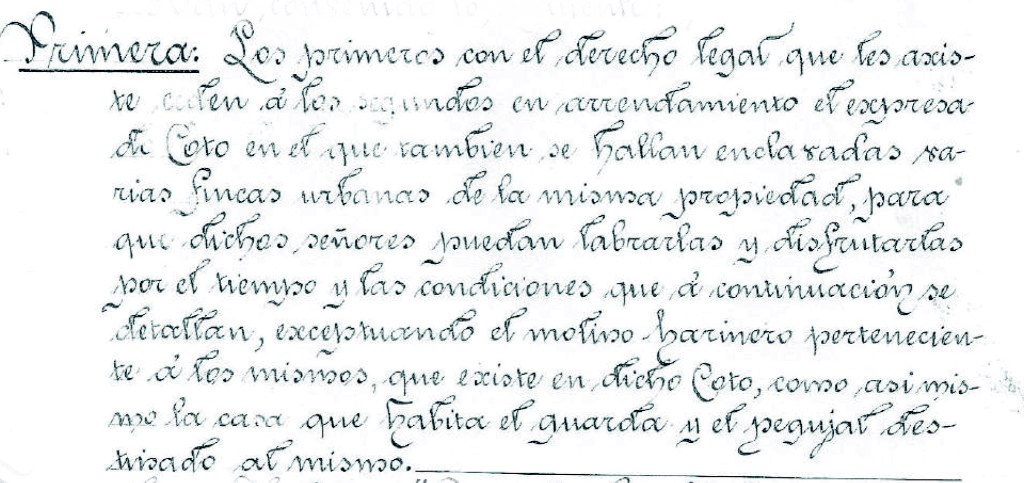 Primera: Los primeros con el derecho legal que les axis-
te ceden á los segundos en arrendamiento el expresa-
do Coto en el que tambien se hallan enclavadas va-
rias fincas urbanas de la misma propiedad, para
que dichos señores puedan labrarlas y disfrutarlas
por el tiempo y las condiciones que á continuación se
detallan, exceptuando el molino harinero pertenecien-
te á los mismos, que existe en dicho Coto, como asi mis-
mo la casa que habita el guarda y el pegujal des-
tinado al mismo.